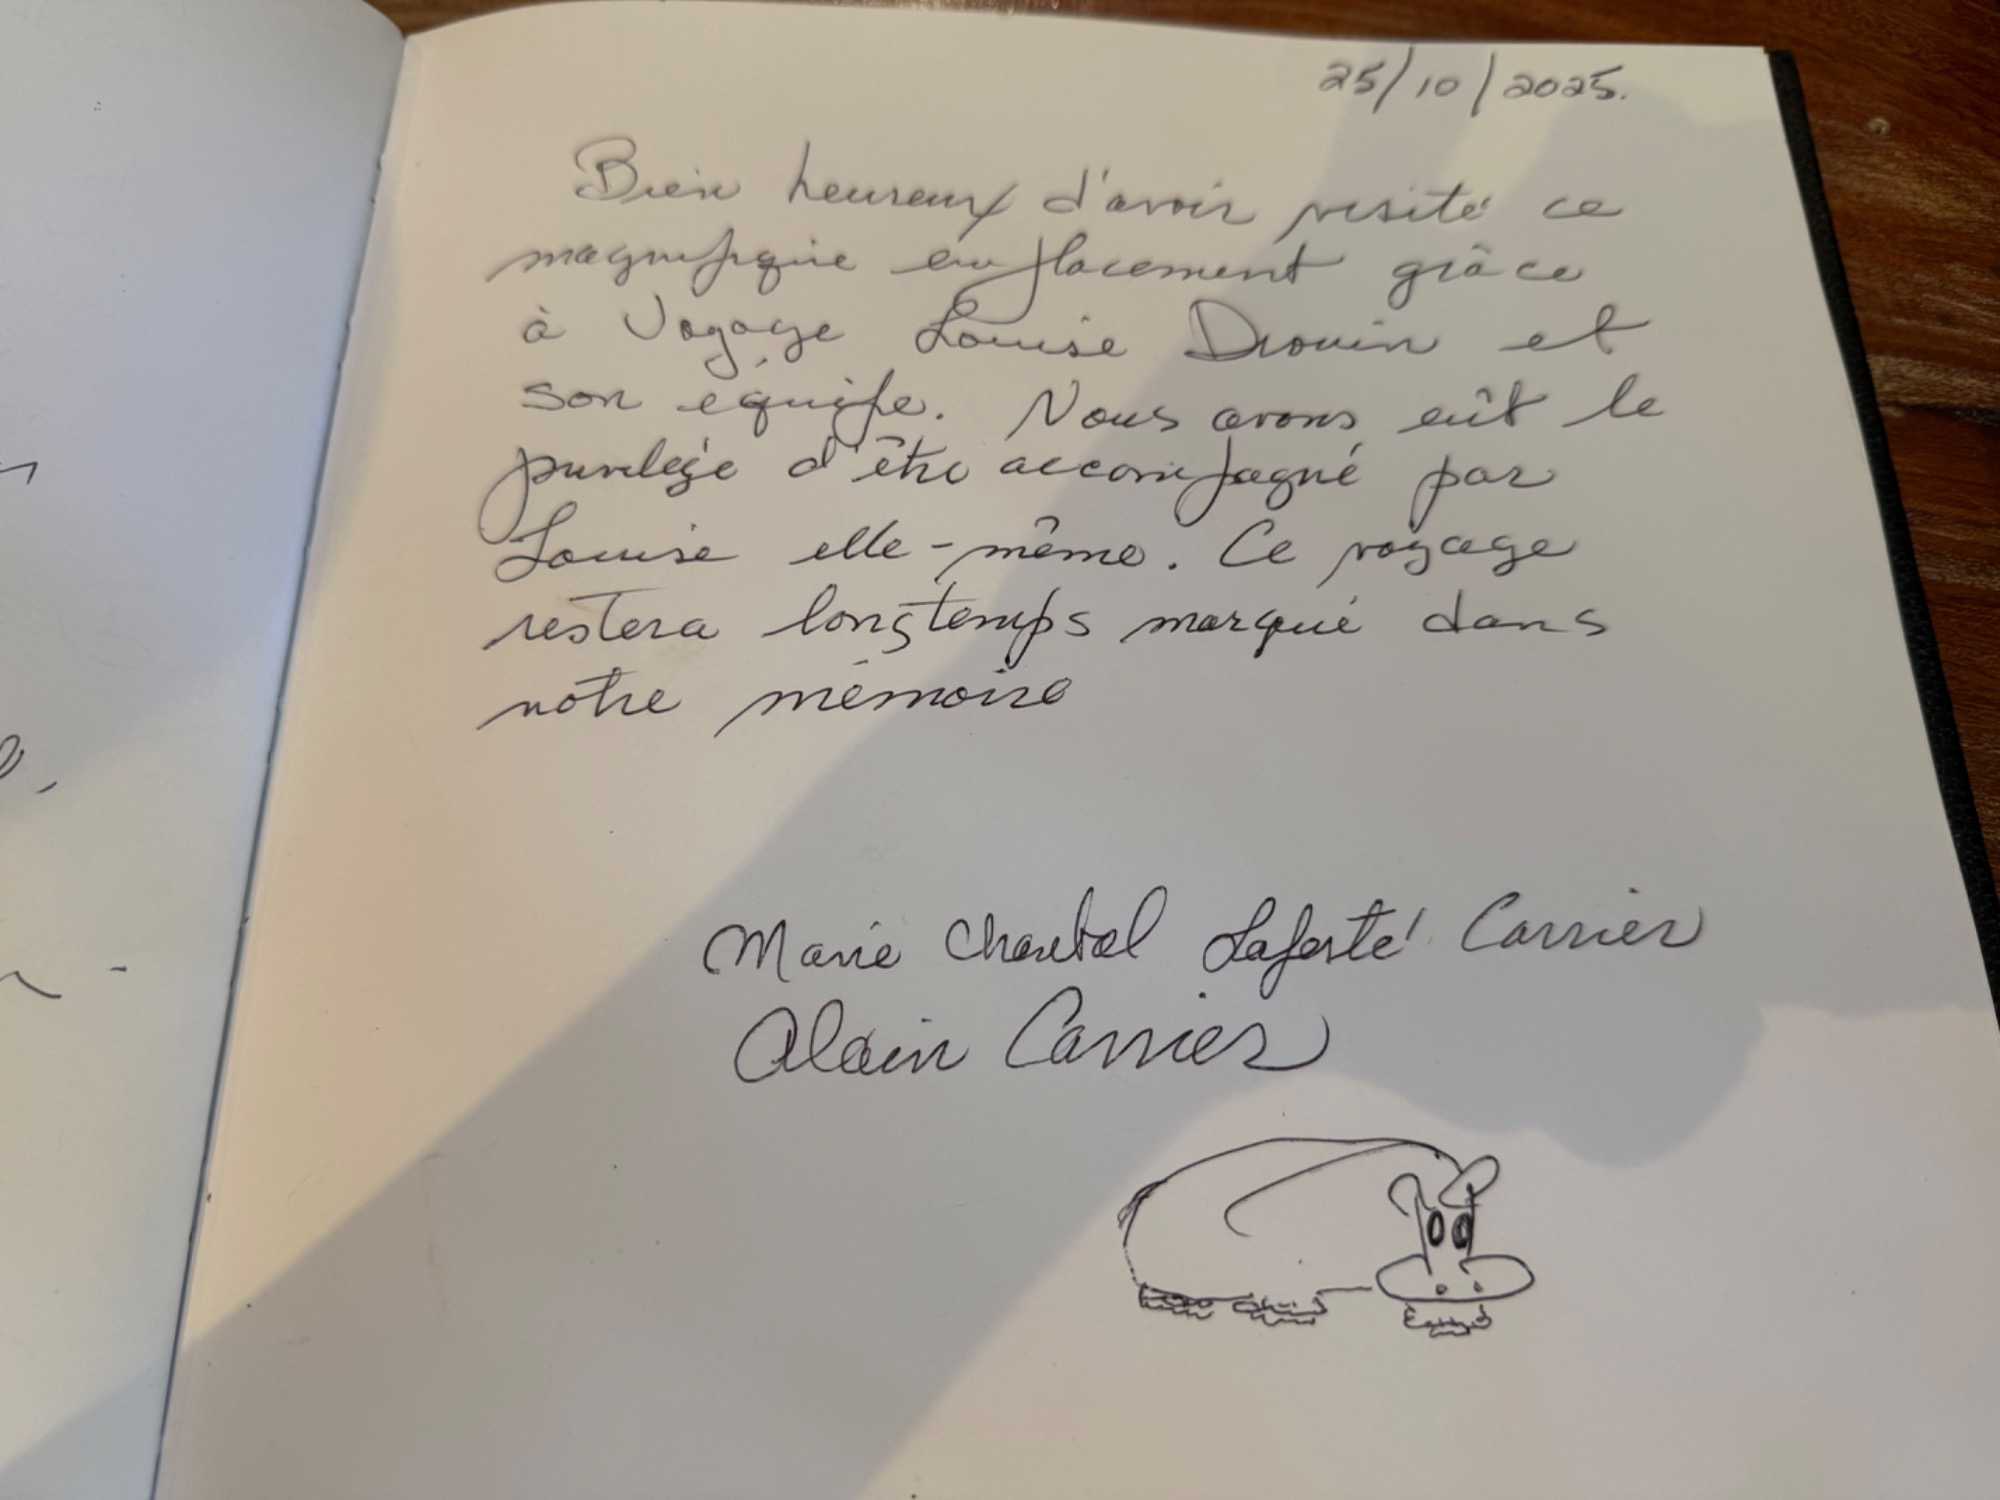 25/10/2025.
Bien heureux d'avoir visité ce
magnifique emplacement grâce
à Voyage Louise Drouin et
son équipe. Nous avons eût le
privilège d'être accompagné par
Louise elle-même. Ce voyage
restera longtemps marqué dans
notre mémoire
Marie Chantal Laferté Carrier
Alain Carrier